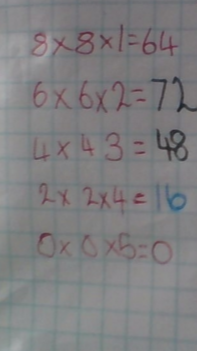 8×8×1=64
6×6×2=72
4×4 3=48
2× 2×4=16
0×0×5=0